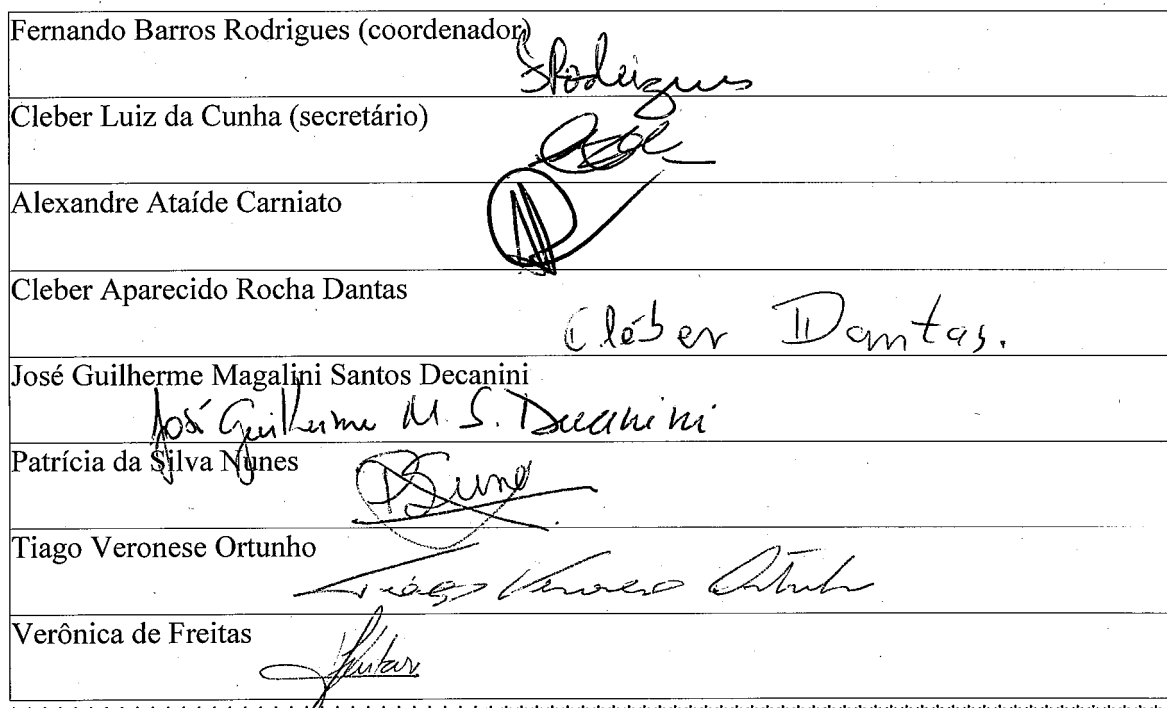 Fernando Barros Rodrigues (coordenador)
FRodrigues
Cleber Luiz da Cunha (secretário)
Alexandre Ataíde Carniato
Cleber Aparecido Rocha Dantas
Cléber Dantas.
José Guilherme Magalini Santos Decanini
José Guilherme M. S. Decanini
Patrícia da Silva Nunes
Tiago Veronese Ortunho
Tiago Veronese Ortunho
Verônica de Freitas